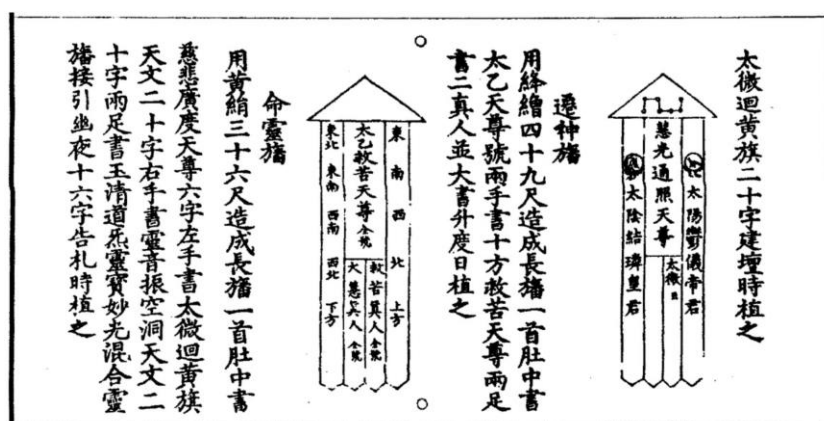 太微迴黃旗二十字建壇時植之
太陽鬱儀帝君
慧光通照天尊
太微
太陰結璘皇君
遷神旛
用絳繒四十九尺造成長旛一首肚中書
太乙天尊號兩手書十方救苦天尊兩足
書二真人並大書升度日植之
東 南 西 北 上方
太乙救苦天尊全號
救苦真人全號
大慧真人全號
東北 東南 西南 西北 下方
命靈旛
用黃絹三十六尺造成長旛一首肚中書
慈悲廣度天尊六字左手書太微迴黃旗
天文二十字右手書靈音振空洞天文二
十字兩足書玉清道炁靈寶妙光混合靈
旛接引幽夜十六字告札時植之